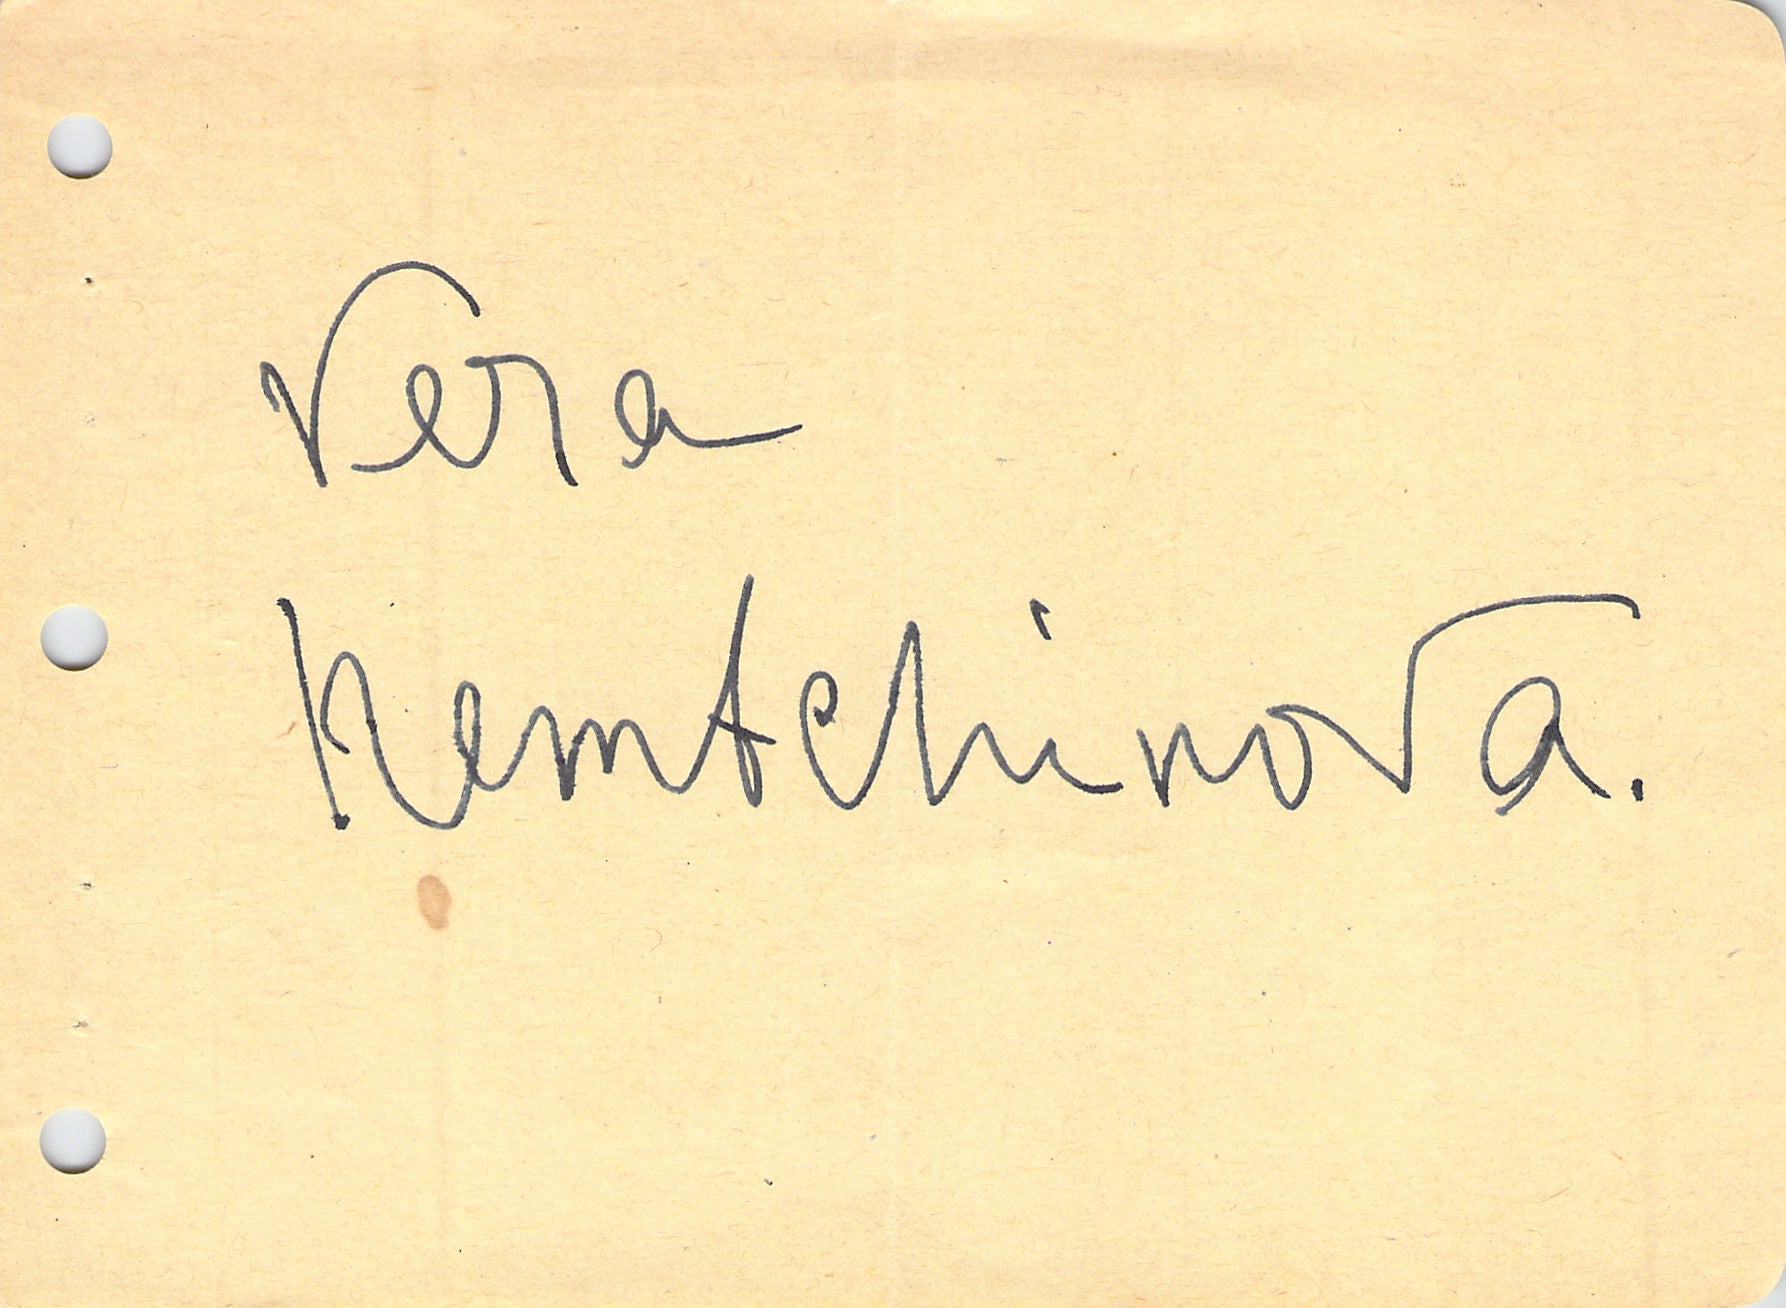 Vera
Nemtchinova.